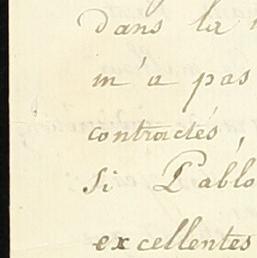 dans la
m'a pas
contractés,
Si Pablo
excellentes